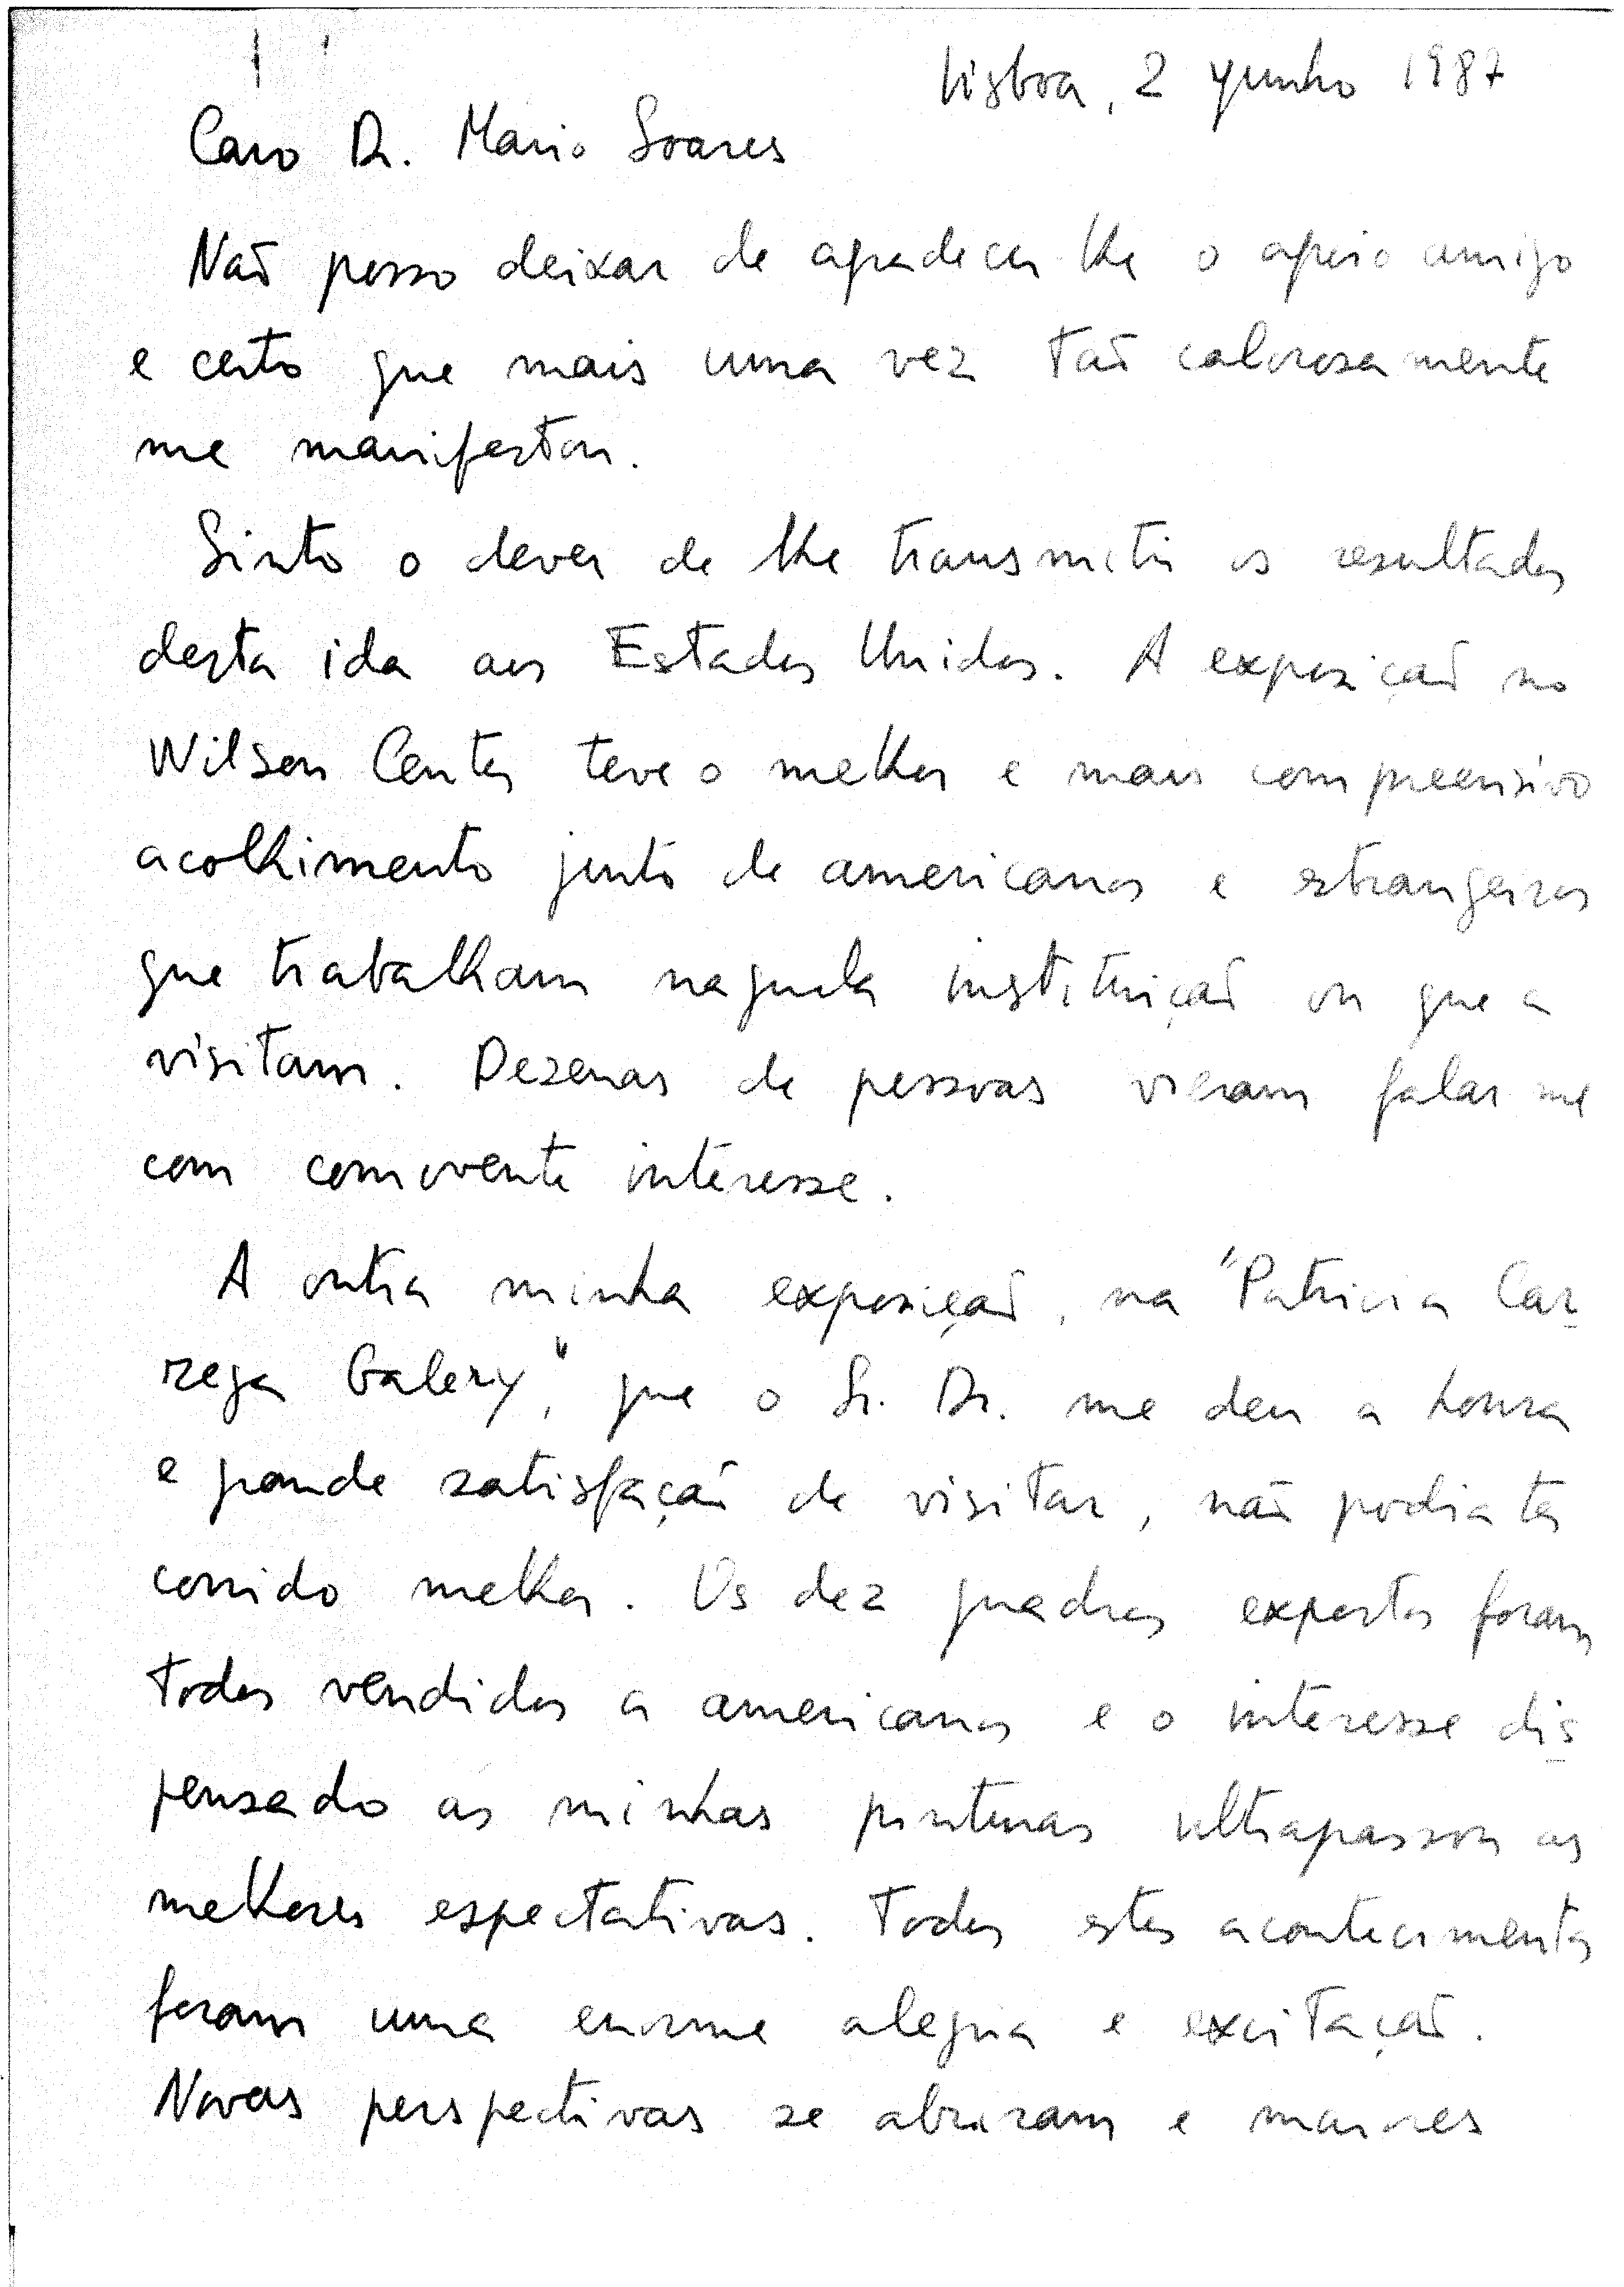 Lisboa, 2 junho 1987
Caro Dr. Mario Soares
Não posso deixar de agradecer-lhe o apoio amigo
e certo que mais uma vez tão calorosamente
me manifestou.
Sinto o dever de lhe transmitir os resultados
desta ida aos Estados Unidos. A exposição no
Wilson Center teve o melhor e mais compreensivo
acolhimento junto de americanos e estrangeiros
que trabalham naquela instituição ou que a
visitam. Dezenas de pessoas vieram falar-me
com comovente interesse.
A outra minha exposição, na "Patricia Car
rega Galery", que o Sr. Dr. me deu a honra
e grande satisfação de visitar, não podia ter
corrido melhor. Os dez quadros expostos foram
todos vendidos a americanos e o interesse dis
pensado as minhas pinturas ultrapassou as
melhores espectativas. Todos estes acontecimentos
foram uma enorme alegria e excitação.
Novas perspectivas se abriram e maiores